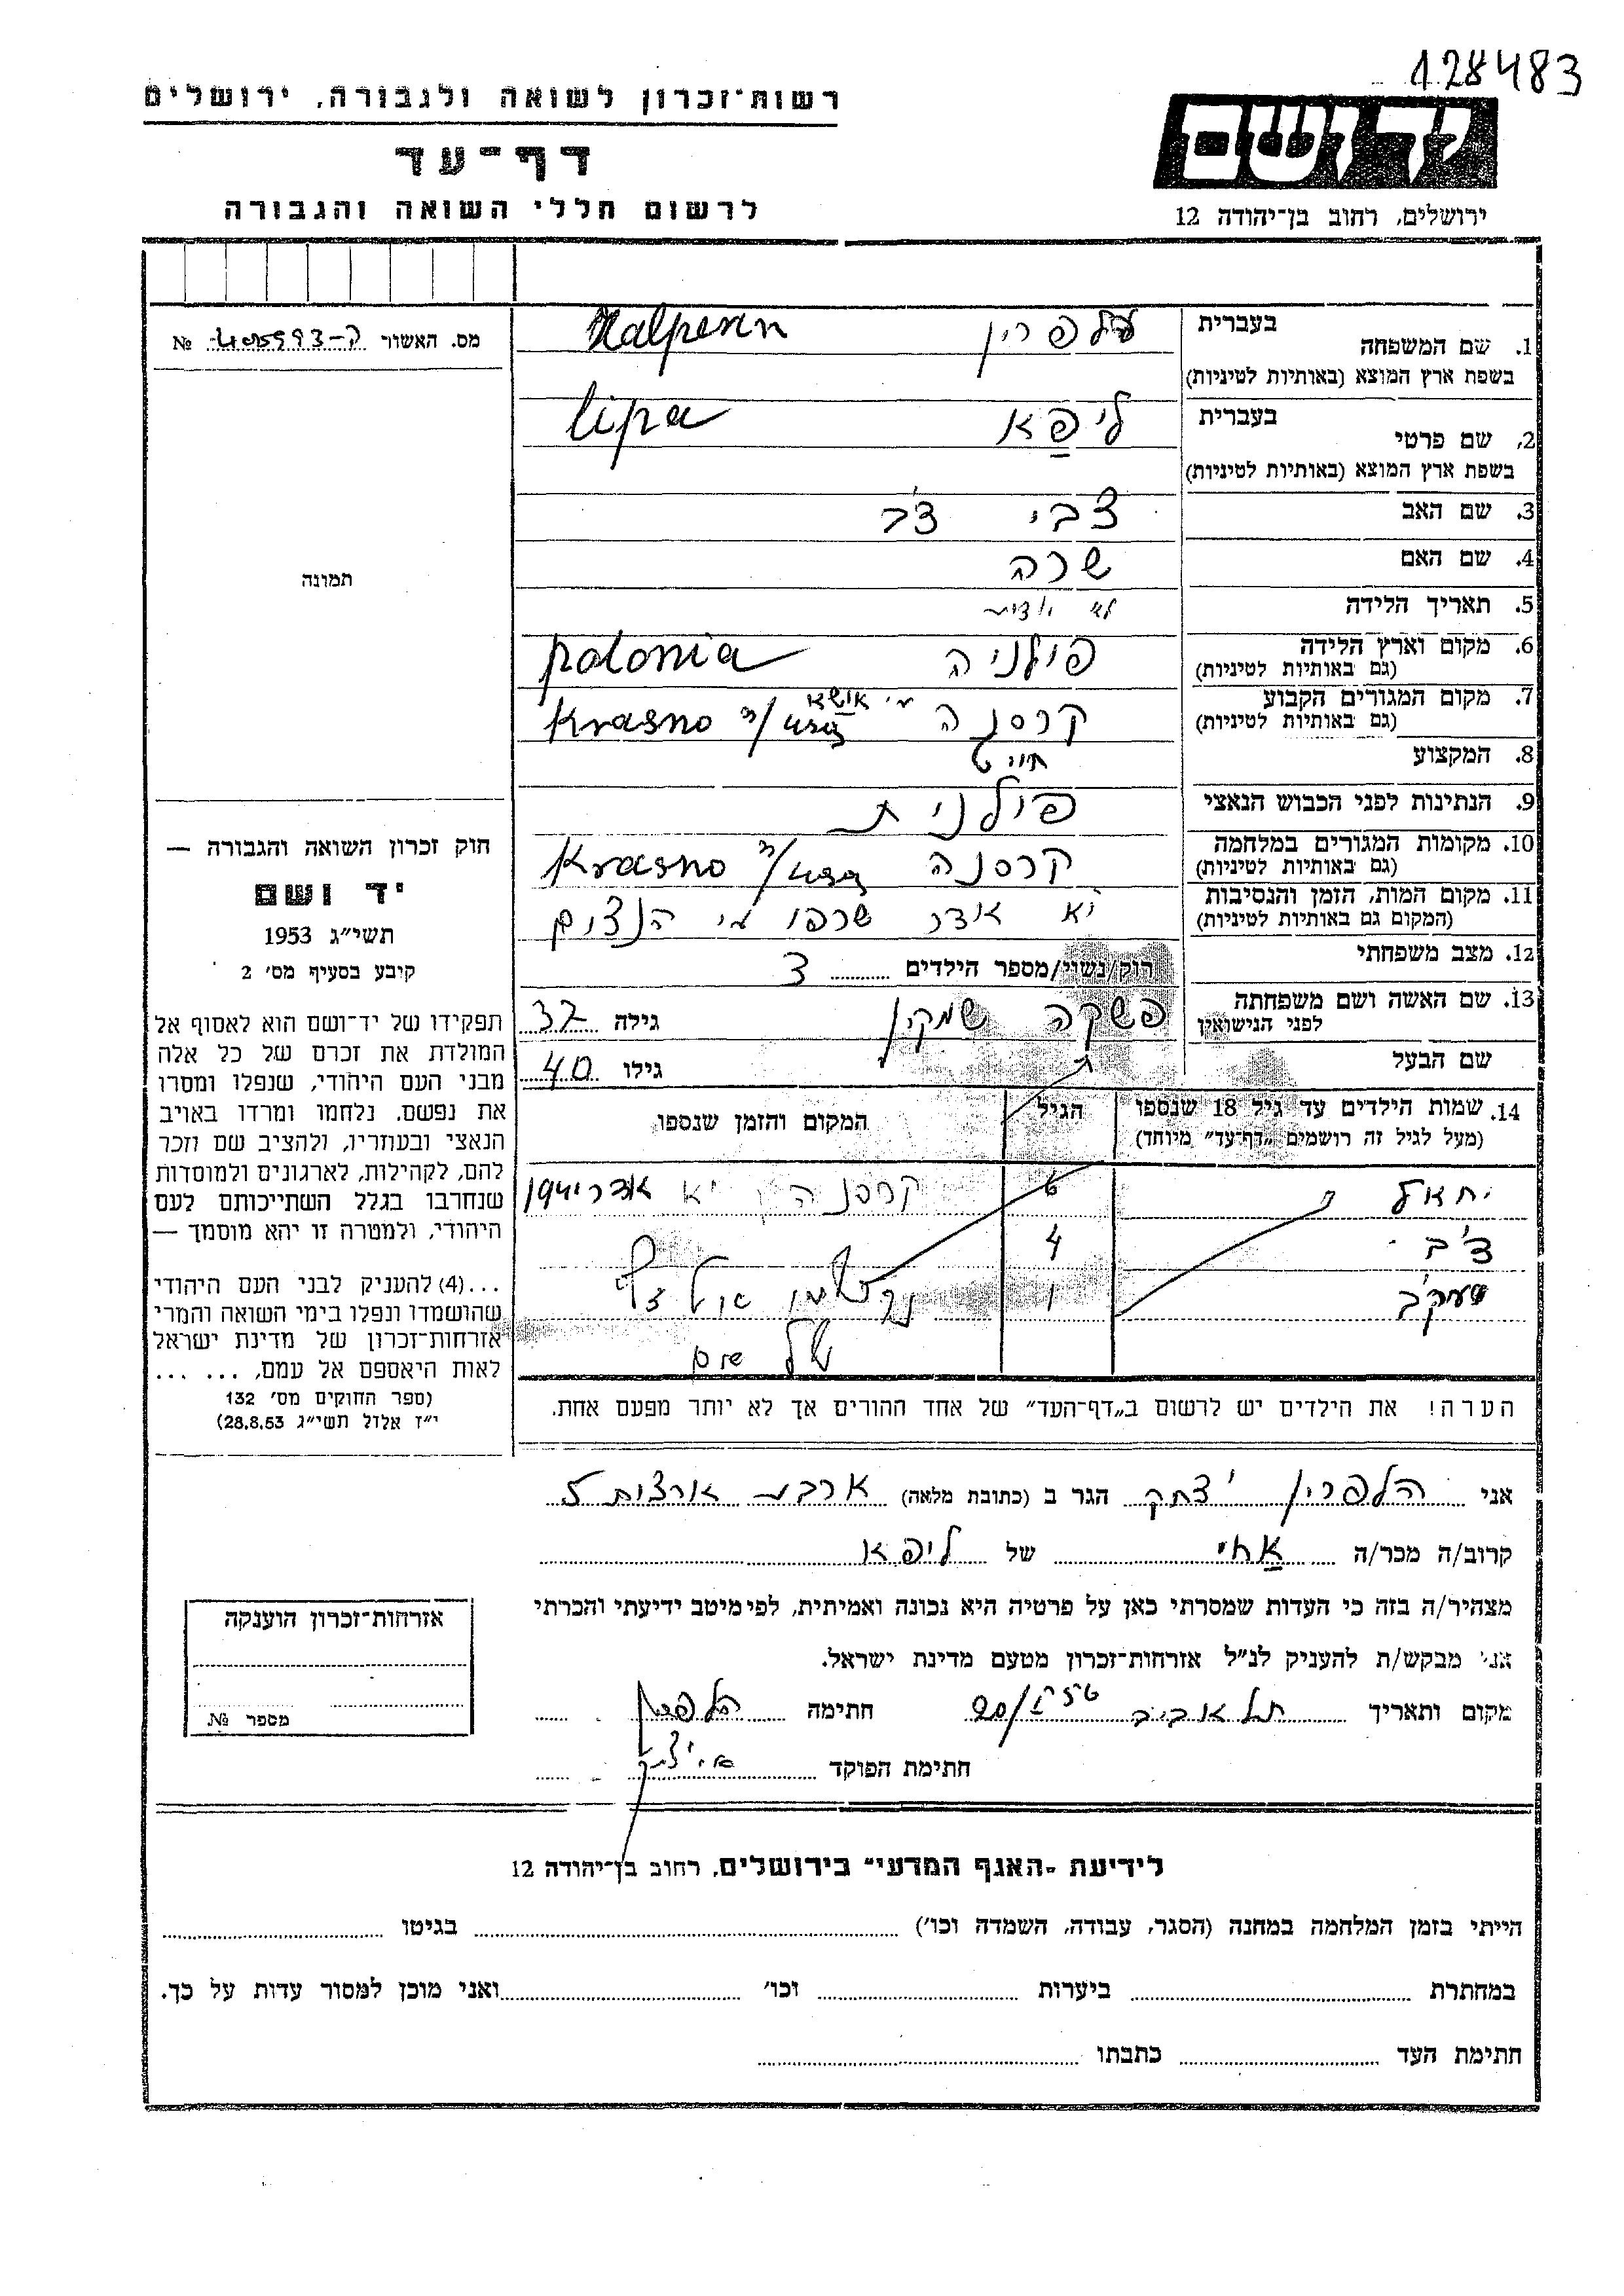 128483
רשות־זכרון לשואה ולגבורה, ירושלים
דף־עד
לרשום חללי השואה והגבורה
יד ושם
ירושלים, רחוב בן־יהודה 12
מס. האשור № 405993-ק
תמונה
חוק זכרון השואה והגבורה —
יד ושם
תשי״ג 1953
קובע בסעיף מס׳ 2
תפקידו של יד־ושם הוא לאסוף אל
המולדת את זכרם של כל אלה
מבני העם היהודי, שנפלו ומסרו
את נפשם, נלחמו ומרדו באויב
הנאצי ובעוזריו, ולהציב שם וזכר
להם, לקהילות, לארגונים ולמוסדות
שנחרבו בגלל השתייכותם לעם
היהודי, ולמטרה זו יהא מוסמך —
...(4) להעניק לבני העם היהודי
שהושמדו ונפלו בימי השואה והמרי
אזרחות־זכרון של מדינת ישראל
לאות היאספם אל עמם, ... ...
(ספר החוקים מס׳ 132
י״ז אלול תשי״ג 28.8.53)
1. שם המשפחה בעברית הלפרין Halpernn
בשפת ארץ המוצא (באותיות לטיניות)
2. שם פרטי בעברית ליפא lipa
בשפת ארץ המוצא (באותיות לטיניות)
3. שם האב צבי
4. שם האם שרה
5. תאריך הלידה לא
6. מקום וארץ הלידה פולניה polonia
(גם באותיות לטיניות)
7. מקום המגורים הקבוע קרסנה Krasno
(גם באותיות לטיניות)
8. המקצוע חייט
9. הנתינות לפני הכבוש הנאצי פולנית
10. מקומות המגורים במלחמה קרסנה Krasno
(גם באותיות לטיניות)
11. מקום המות, הזמן והנסיבות יא אדר שרפו הנצים
(המקום גם באותיות לטיניות)
12. מצב משפחתי רוק/נשוי/מספר הילדים 3
13. שם האשה ושם משפחתה לפני הנישואין פשקה שמקין גילה 37
שם הבעל גילו 40
14. שמות הילדים עד גיל 18 שנספו הגיל המקום והזמן שנספו
(מעל לגיל זה רושמים „דף־עד״ מיוחד)
יחאל 6 קרסנה יא אדר
4
יעקב 1
של
הערה! את הילדים יש לרשום ב„דף־העד״ של אחד ההורים אך לא יותר מפעם אחת.
אני הלפרין יצחק הגר ב (כתובת מלאה) ארבע ארצות 5
קרוב/ה מכר/ה אחי של ליפא
מצהיר/ה בזה כי העדות שמסרתי כאן על פרטיה היא נכונה ואמיתית, לפי מיטב ידיעתי והכרתי
אני מבקש/ת להעניק לנ״ל אזרחות־זכרון מטעם מדינת ישראל.
מקום ותאריך תל אביב 20/ חתימה הלפרין
חתימת הפוקד
אזרחות־זכרון הוענקה
מספר №
לידיעת „האגף המדעי״ בירושלים, רחוב בן־יהודה 12
הייתי בזמן המלחמה במחנה (הסגר, עבודה, השמדה וכו׳) בגיטו
במחתרת ביערות וכו׳ ואני מוכן למסור עדות על כך.
חתימת העד כתבתו